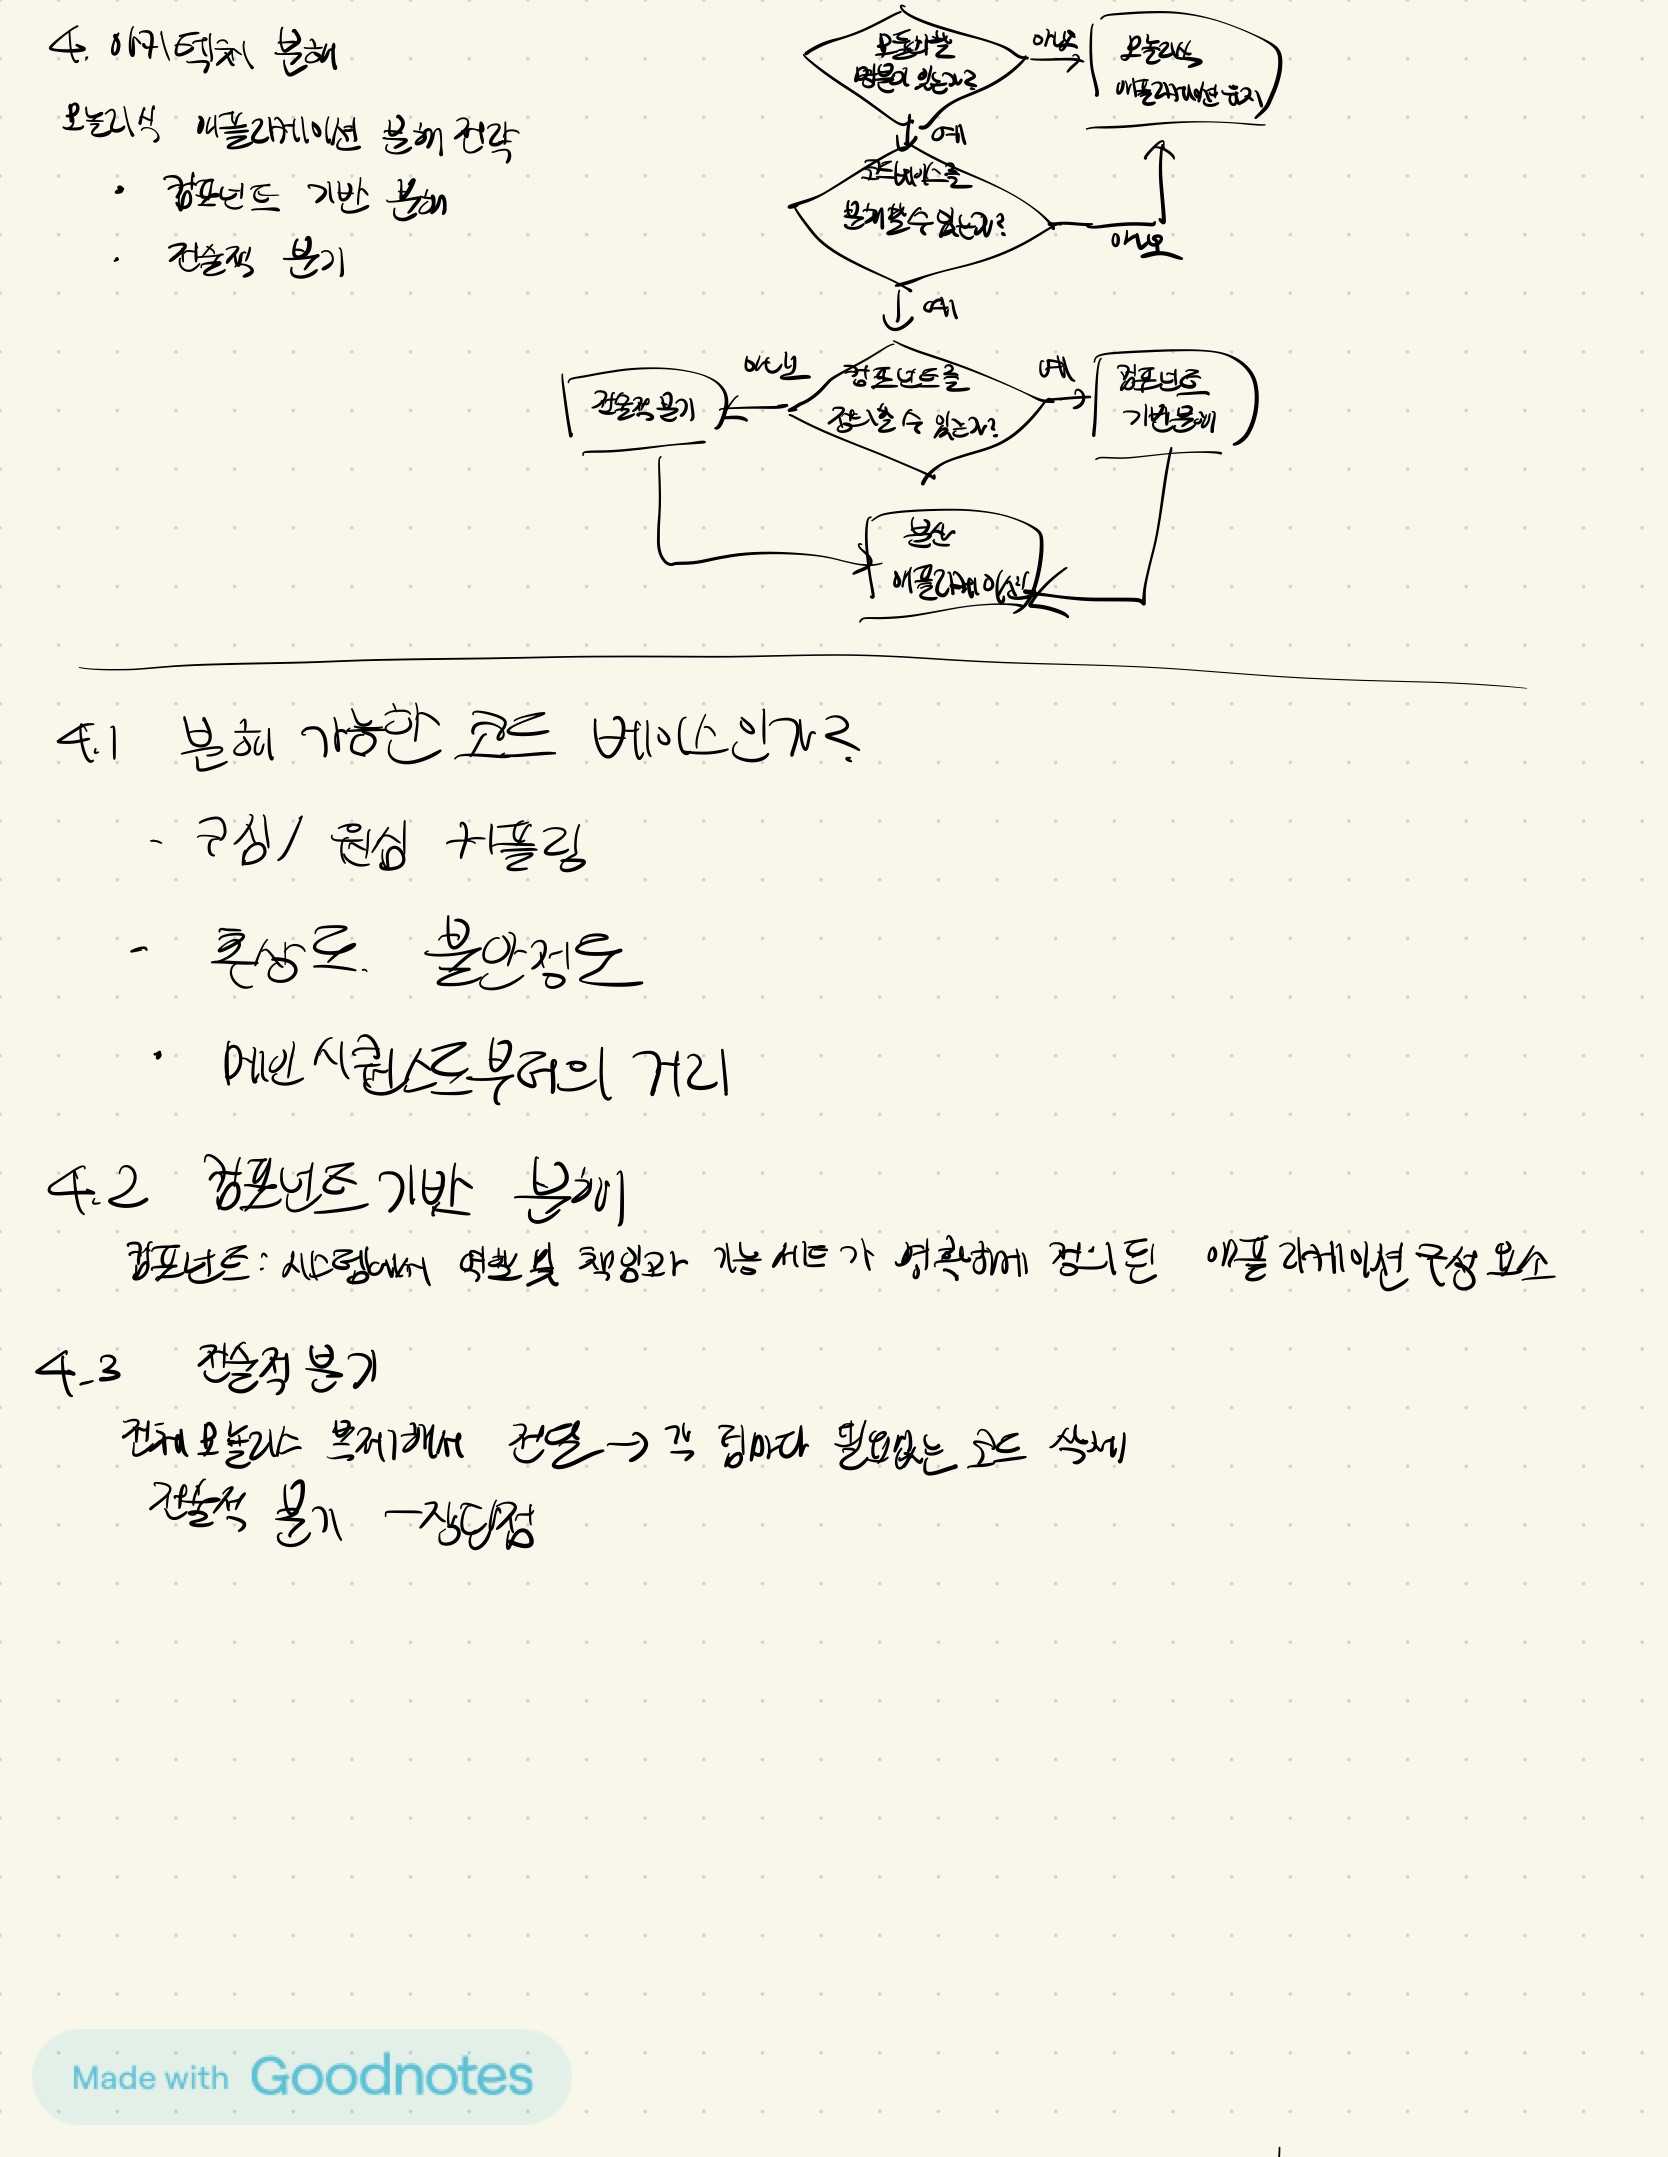 4. 아키텍처 분해
모놀리식 애플리케이션 분해 전략
· 컴포넌트 기반 분해
· 전술적 분기
모듈화할
명분이 있는가?
아니오
모놀리식
애플리케이션 유지
예
코드베이스를
분해할 수 있는가?
아니오
예
컴포넌트를
정의할 수 있는가?
아니오
전술적 분기
예
컴포넌트
기반분해
분산
애플리케이션
4.1 분해 가능한 코드 베이스인가?
- 구심/ 원심 커플링
- 추상도. 불안정도
· 메인시퀀스로부터의 거리
4.2 컴포넌트 기반 분해
컴포넌트: 시스템에서 역할 및 책임과 기능 세트가 명확하게 정의된 애플리케이션 구성 요소
4_3 전술적 분기
전체 모놀리스 복제해서 전달 → 각 팀마다 필요없는 코드 삭제
전술적 분기 - 장단점
Made with Goodnotes